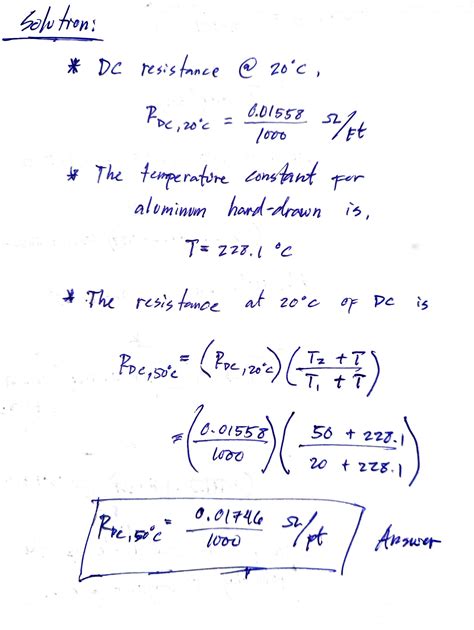 Solution:
* DC resistance @ 20°C,
R_DC,20°C = 0.01558/1000 Ω/ft
* The temperature constant for
aluminum hard-drawn is,
T = 228.1 °C
* The resistance at 20°C of DC is
R_DC,50°C = (R_DC,20°C)((T₂ + T)/(T₁ + T))
= (0.01558/1000)((50 + 228.1)/(20 + 228.1))
R_DC,50°C = 0.01746/1000 Ω/ft Answer